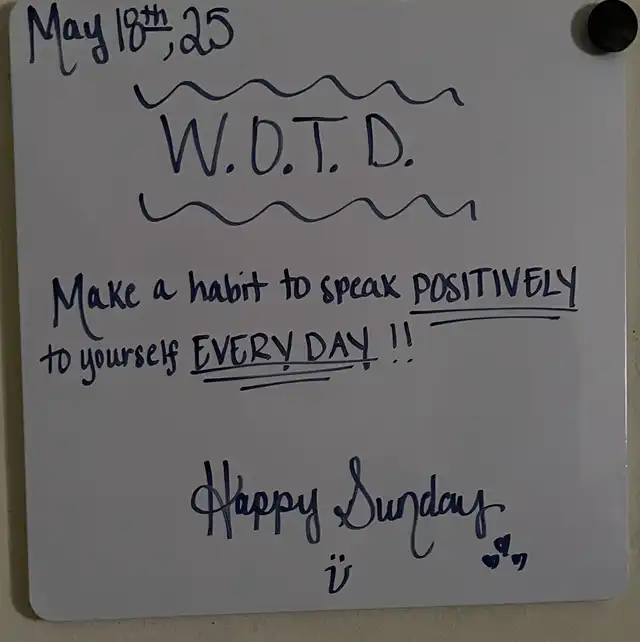 May 18th, 25
W.O.T.D.
Make a habit to speak POSITIVELY
to yourself EVERY DAY !!
Happy Sunday